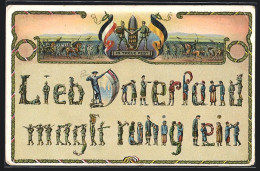 Lieb Vaterland
magst ruhig sein